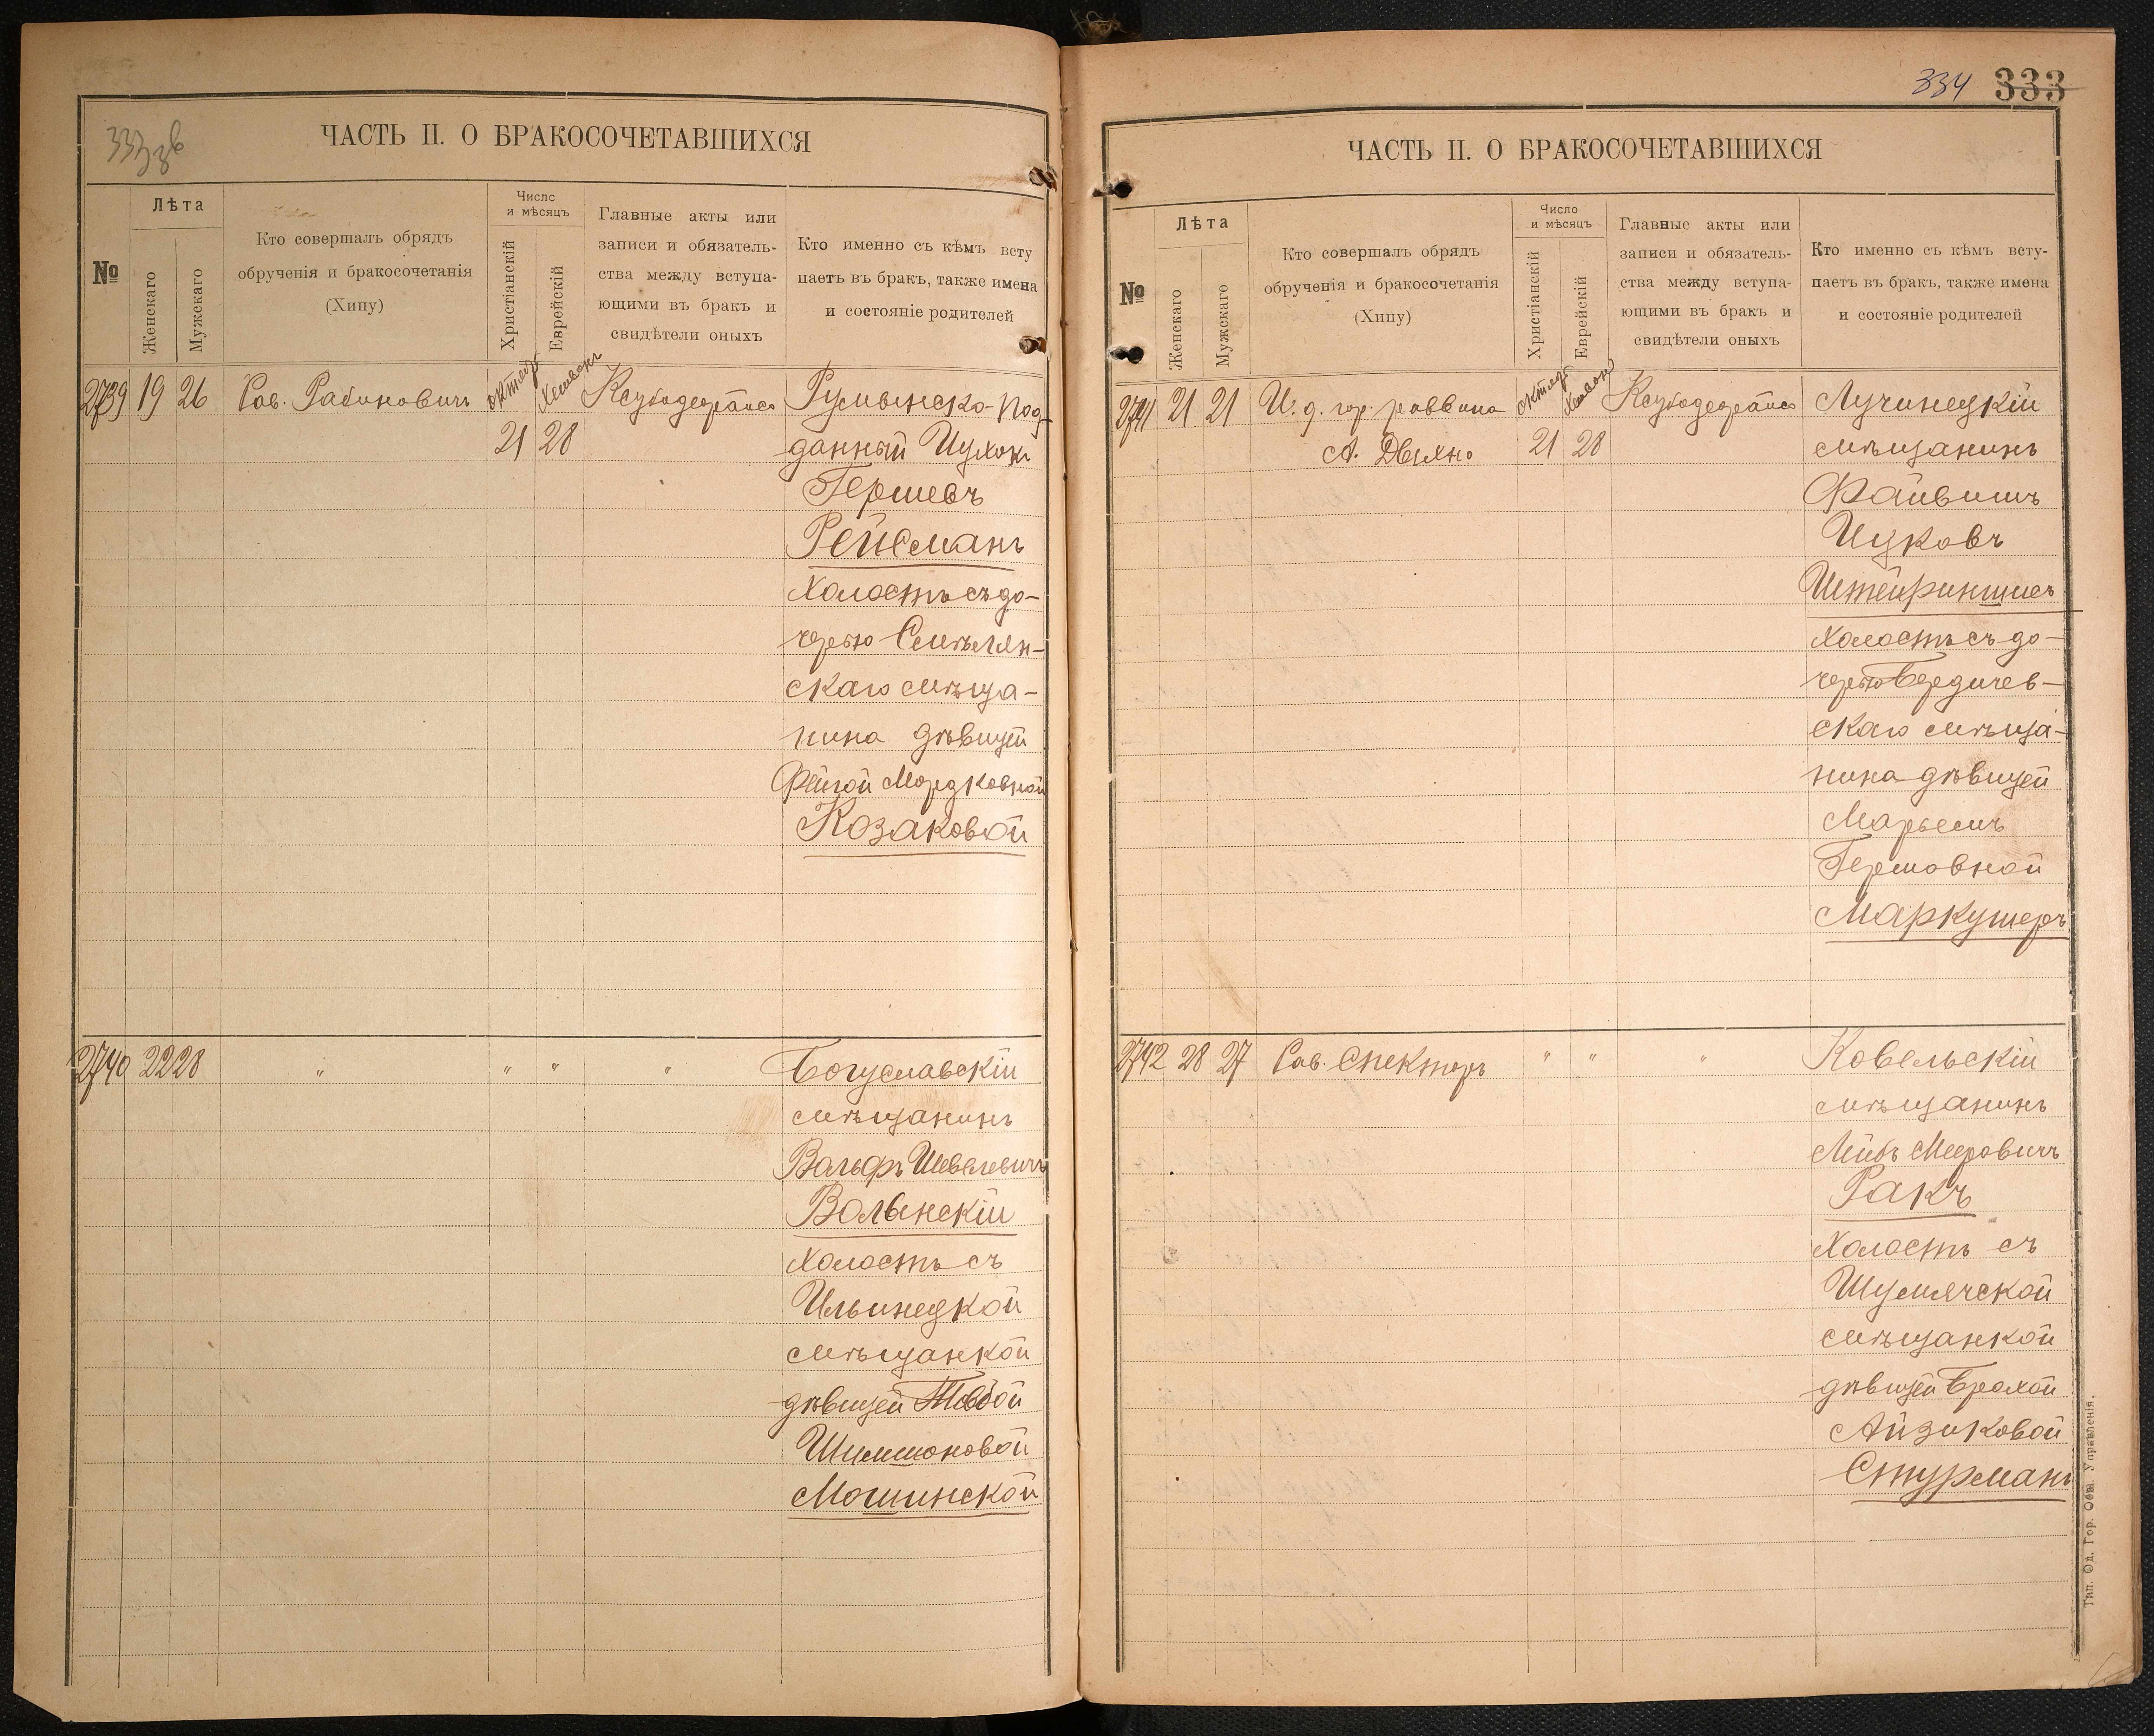 333 зв
ЧАСТЬ II. О БРАКОСОЧЕТАВШИХСЯ
№
Лѣта
Женскаго
Мужскаго
Кто совершалъ обрядъ
обрученія и бракосочетанія
(Хипу)
Число
и мѣсяцъ
Христіанскій
Еврейскій
Главные акты или
записи и обязатель-
ства между вступа-
ющими въ бракъ и
свидѣтели оныхъ
Кто именно съ кѣмъ всту
паетъ въ бракъ, также имена
и состояніе родителей
2739 19 26 Рав. Рабиновичъ
октябр
Хешванъ
21 28
Румынско-под-
данный Ицхокъ
Гершевъ
Рейсманъ
холостъ съ до-
черью Смѣлян-
скаго мѣща-
нина дѣвицей
Фейгой Мордковной
Козаковой
2740 22 28 " " " "
Богуславскій
мѣщанинъ
Вольфъ Шевелевичъ
Волынскій
холостъ съ
Ильинецкой
мѣщанкой
дѣвицей
Шимшоновой
Мошинской
334 333
ЧАСТЬ II. О БРАКОСОЧЕТАВШИХСЯ
№
Лѣта
Женскаго
Мужскаго
Кто совершалъ обрядъ
обрученія и бракосочетанія
(Хипу)
Число
и мѣсяцъ
Христіанскій
Еврейскій
Главные акты или
записи и обязатель-
ства между вступа-
ющими въ бракъ и
свидѣтели оныхъ
Кто именно съ кѣмъ всту-
паетъ въ бракъ, также имена
и состояніе родителей
2741 21 21 И. д. гор. раввина
А.
октябр
Хешван
21 28
Лучинецкій
мѣщанинъ
Файвишъ
Ицковъ
холостъ съ до-
черью Бердичев-
скаго мѣща-
нина дѣвицей
Марьемъ
Гершовной
Маркушеръ
2742 28 27 Рав. Спекторъ " " "
Ковельскій
мѣщанинъ
Лейбъ Мееровичъ
Ракъ
холостъ съ
Шумячской
мѣщанкой
дѣвицей Брохой
Айзиковой
Стурманъ
Тип. Од. Гор. Общ. Управленія.